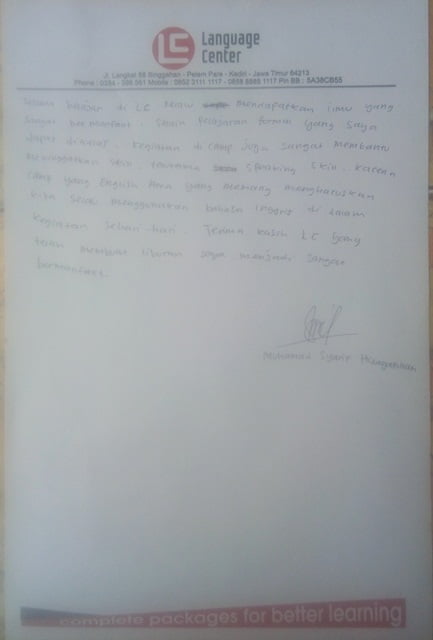 LC
Language
Center
Jl. Langkat 88 Singgahan - Pelem Pare - Kediri - Jawa Timur 64213
Phone : 0354 - 398.061 Mobile : 0852 3111 1117 - 0858 8585 1117 Pin BB : 5A38CB55
belajar di LC mendapatkan ilmu yang
sangat bermanfaat. Selain Pelajaran formal yang saya
dapat dikelas, kegiatan di camp juga sangat membantu
meningkatkan skill, terutama speaking skill. Karena
camp yang English Area yang memang mengharuskan
kita selalu menggunakan bahasa inggris di dalam
kegiatan sehari-hari. Terima kasih LC
telah membuat liburan saya menjadi sangat
bermanfaat.
Muhamad Syarif
complete packages for better learning